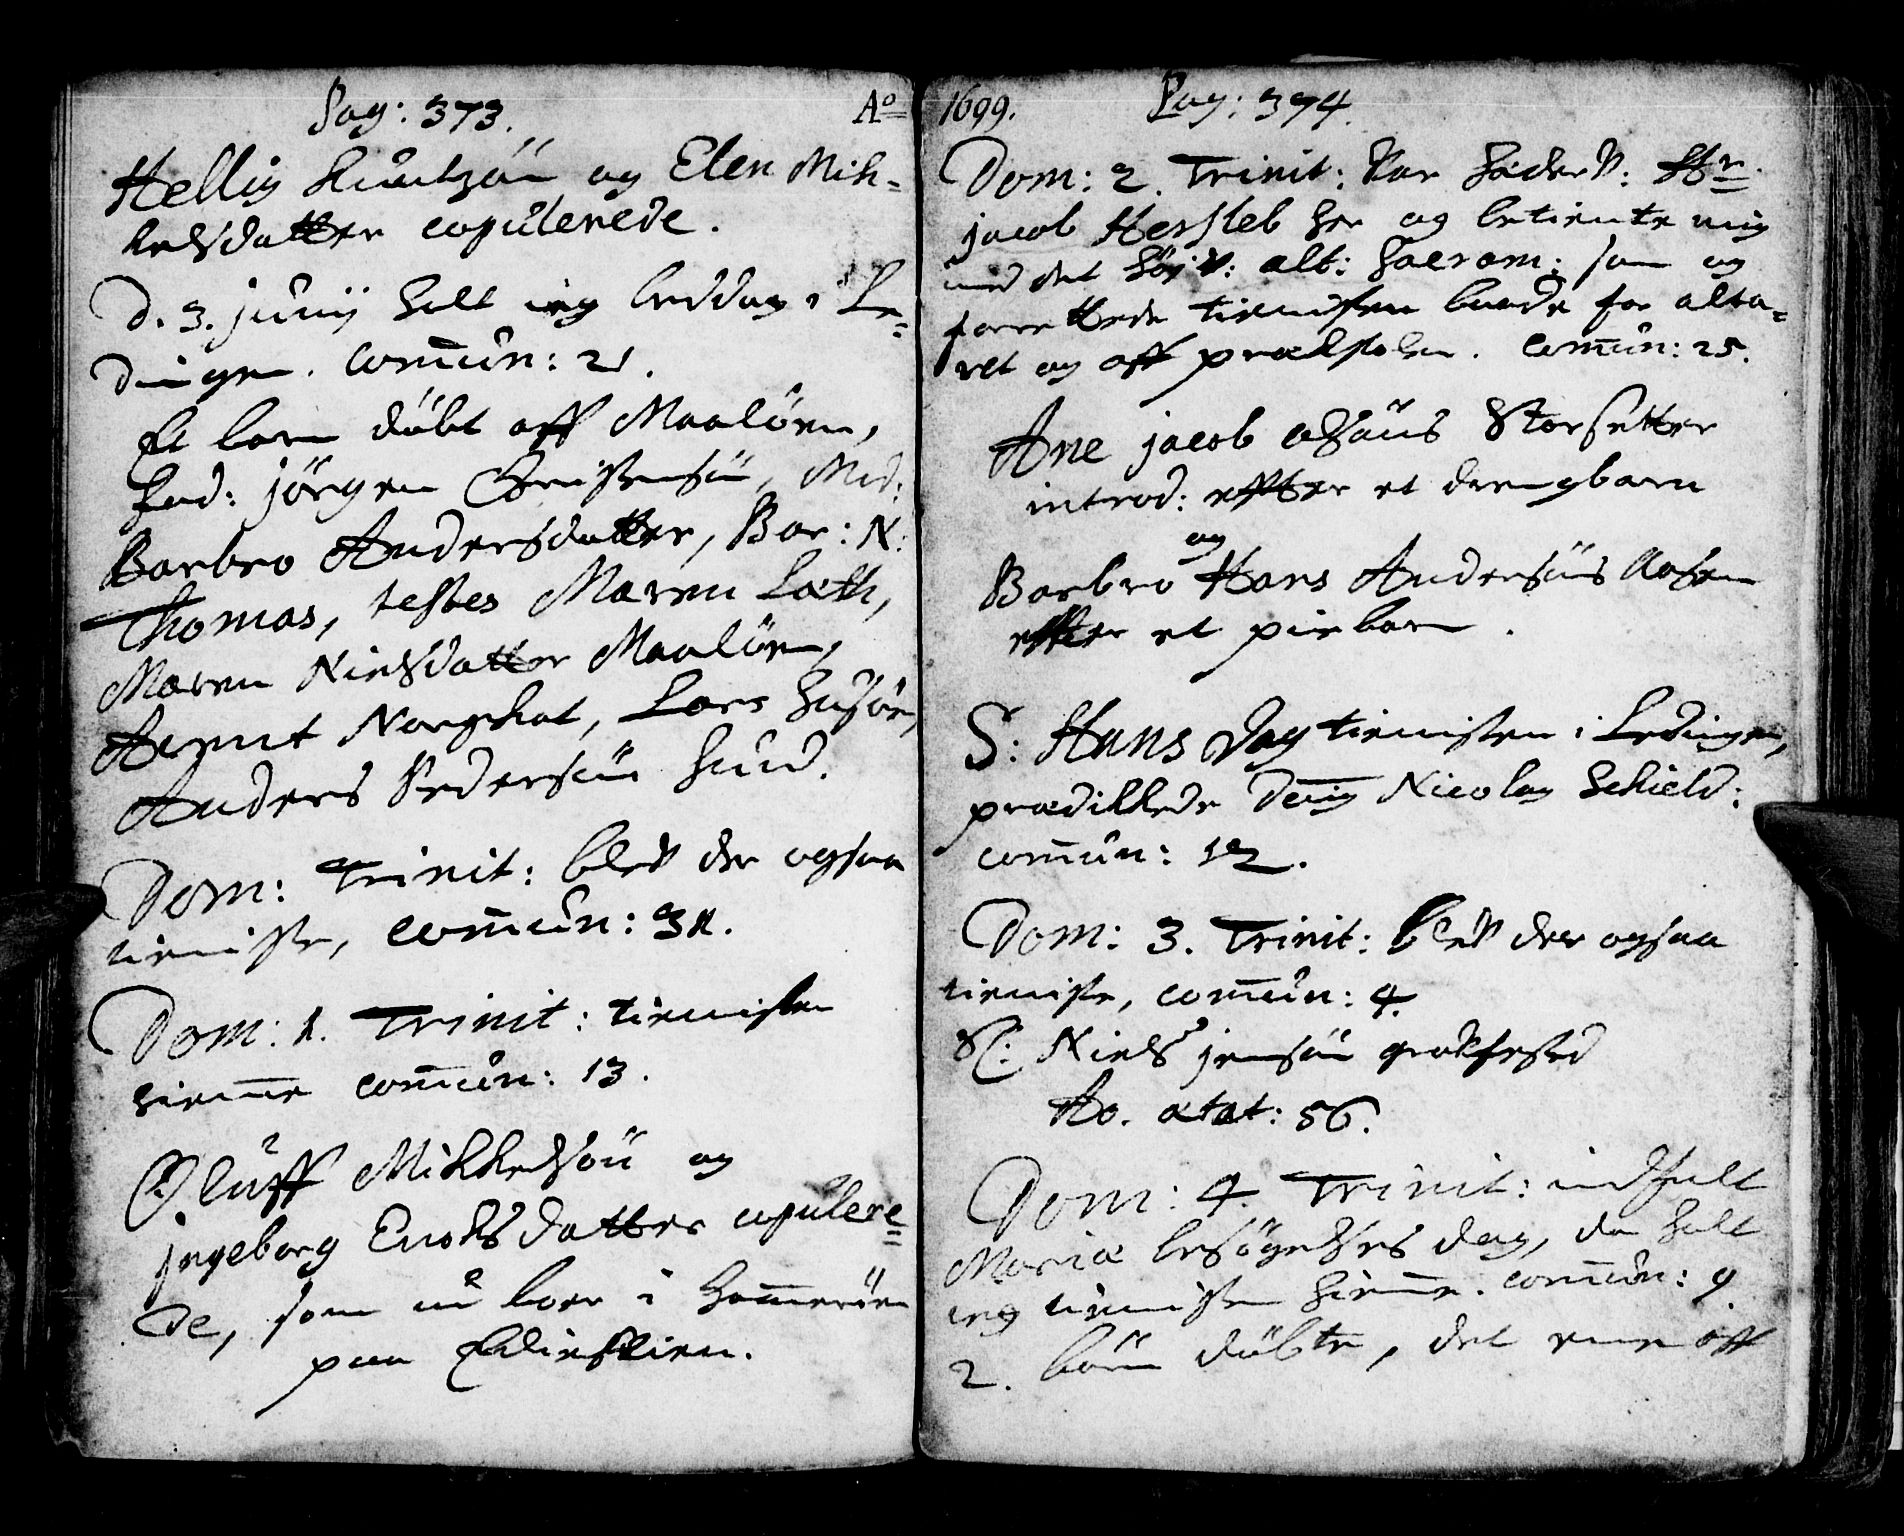 Pag: 373.
Aº
Hellig Knudzøn og Elen Mik-
kelsdatter copulerede.
D. 3. junij holt ieg beddag i Lø-
dingen. Com̄un: 21.
Et barn døbt aff Maaløen,
Fad: jørgen Christensøn, Mod:
Barbro Andersdatter, Bar: N:
Thomas, testes Maren Loth,
Maren Nielsdatter Maaløen,
Arent Norghat, Lars Husøe,
Anders Pedersøn Hund.
Dom: Trinit: bleff der ogsaa
tieniste, com̄un: 31.
Dom: 1. Trinit: tienisten
hiem̄e com̄un: 13.
Oluff Mikkelsøn og
jngeborg Enoksdatter copulere-
de, som nu boer i Ham̄erøen
paa
1699.
Pag: 374.
Dom: 2. Trinit: var Hr.
jacob Hersleb her og betiente mig
med det høj v: alt: Sacram: som og
forrettede tienisten baade for alta-
ret og aff prædkstolen. Com̄un: 25.
Ane jacob olsøns Storsetter
introd: effter et drengbarn
og
Barbro Hans Andersøns
effter et piebarn.
S: Hans Dag tienisten i Lødingen,
prædikkede Den̄ Nicolay Schield:
com̄un: 12.
Dom: 3. Trinit: bleff der ogsaa
tieniste, com̄un: 4.
Sl: Niels jensøn graffested
Ao. ætat: 56.
Dom: 4. Trinit: indfalt
Mariæ besøgelses dag, da holt
ieg tienisten hiem̄e. com̄un: 9.
2. børn døbte, det ene aff